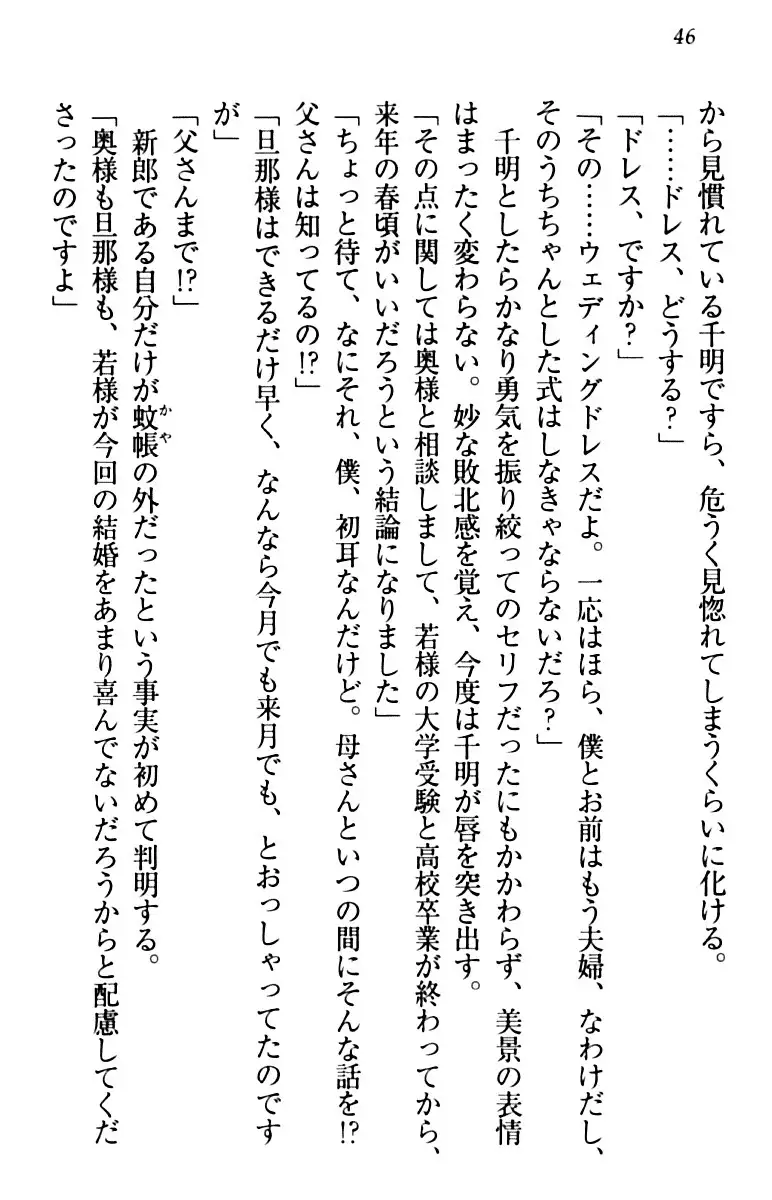 46
から見慣れている千明ですら、危うく見惚れてしまうくらいに化ける。
「……ドレス、どうする？」
「ドレス、ですか？」
「その……ウェディングドレスだよ。一応はほら、僕とお前はもう夫婦、なわけだし、
そのうちちゃんとした式はしなきゃならないだろ？」
千明としたらかなり勇気を振り絞ってのセリフだったにもかかわらず、美景の表情
はまったく変わらない。妙な敗北感を覚え、今度は千明が唇を突き出す。
「その点に関しては奥様と相談しまして、若様の大学受験と高校卒業が終わってから、
来年の春頃がいいだろうという結論になりました」
「ちょっと待て、なにそれ、僕、初耳なんだけど。母さんといつの間にそんな話を!?
父さんは知ってるの!?」
「旦那様はできるだけ早く、なんなら今月でも来月でも、とおっしゃってたのです
が」
「父さんまで!?」
新郎である自分だけが蚊帳の外だったという事実が初めて判明する。
「奥様も旦那様も、若様が今回の結婚をあまり喜んでないだろうからと配慮してくだ
さったのですよ」